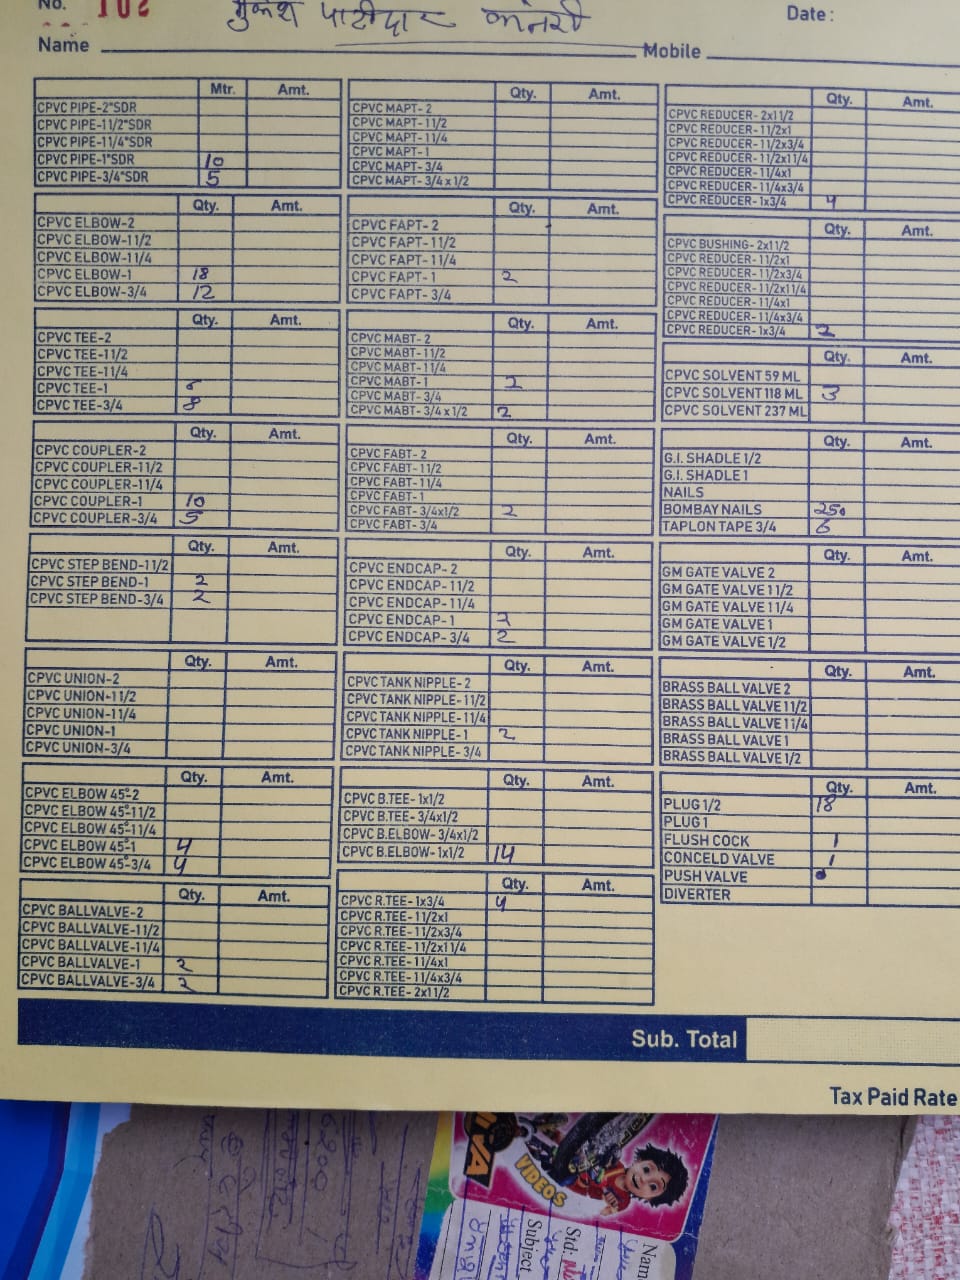 No. 102
मुकेश पाटीदार
Name Mobile Date:
Mtr. Amt.
CPVC PIPE-2"SDR
CPVC PIPE-11/2"SDR
CPVC PIPE-11/4"SDR
CPVC PIPE-1"SDR 10
CPVC PIPE-3/4"SDR 5
Qty. Amt.
CPVC ELBOW-2
CPVC ELBOW-11/2
CPVC ELBOW-11/4
CPVC ELBOW-1 18
CPVC ELBOW-3/4 12
Qty. Amt.
CPVC TEE-2
CPVC TEE-11/2
CPVC TEE-11/4
CPVC TEE-1
CPVC TEE-3/4 8
Qty. Amt.
CPVC COUPLER-2
CPVC COUPLER-11/2
CPVC COUPLER-11/4
CPVC COUPLER-1 10
CPVC COUPLER-3/4 5
Qty. Amt.
CPVC STEP BEND-11/2
CPVC STEP BEND-1 2
CPVC STEP BEND-3/4 2
Qty. Amt.
CPVC UNION-2
CPVC UNION-11/2
CPVC UNION-11/4
CPVC UNION-1
CPVC UNION-3/4
Qty. Amt.
CPVC ELBOW 45°-2
CPVC ELBOW 45°-11/2
CPVC ELBOW 45°-11/4
CPVC ELBOW 45°-1 4
CPVC ELBOW 45°-3/4 4
Qty. Amt.
CPVC BALLVALVE-2
CPVC BALLVALVE-11/2
CPVC BALLVALVE-11/4
CPVC BALLVALVE-1 2
CPVC BALLVALVE-3/4 2
Qty. Amt.
CPVC MAPT- 2
CPVC MAPT- 11/2
CPVC MAPT- 11/4
CPVC MAPT- 1
CPVC MAPT- 3/4
CPVC MAPT- 3/4 x 1/2
Qty. Amt.
CPVC FAPT- 2
CPVC FAPT- 11/2
CPVC FAPT- 11/4
CPVC FAPT- 1 2
CPVC FAPT- 3/4
Qty. Amt.
CPVC MABT- 2
CPVC MABT- 11/2
CPVC MABT- 11/4
CPVC MABT- 1 2
CPVC MABT- 3/4
CPVC MABT- 3/4 x 1/2 2
Qty. Amt.
CPVC FABT- 2
CPVC FABT- 11/2
CPVC FABT- 11/4
CPVC FABT- 1
CPVC FABT- 3/4x1/2 2
CPVC FABT- 3/4
Qty. Amt.
CPVC ENDCAP- 2
CPVC ENDCAP- 11/2
CPVC ENDCAP- 11/4
CPVC ENDCAP- 1 2
CPVC ENDCAP- 3/4 2
Qty. Amt.
CPVC TANK NIPPLE- 2
CPVC TANK NIPPLE- 11/2
CPVC TANK NIPPLE- 11/4
CPVC TANK NIPPLE- 1 2
CPVC TANK NIPPLE- 3/4
Qty. Amt.
CPVC B.TEE- 1x1/2
CPVC B.TEE- 3/4x1/2
CPVC B.ELBOW- 3/4x1/2
CPVC B.ELBOW- 1x1/2 14
Qty. Amt.
CPVC R.TEE- 1x3/4 4
CPVC R.TEE- 11/2x1
CPVC R.TEE- 11/2x3/4
CPVC R.TEE- 11/2x11/4
CPVC R.TEE- 11/4x1
CPVC R.TEE- 11/4x3/4
CPVC R.TEE- 2x11/2
Qty. Amt.
CPVC REDUCER- 2x11/2
CPVC REDUCER- 11/2x1
CPVC REDUCER- 11/2x3/4
CPVC REDUCER- 11/2x11/4
CPVC REDUCER- 11/4x1
CPVC REDUCER- 11/4x3/4
CPVC REDUCER- 1x3/4 4
Qty. Amt.
CPVC BUSHING- 2x11/2
CPVC REDUCER- 11/2x1
CPVC REDUCER- 11/2x3/4
CPVC REDUCER- 11/2x11/4
CPVC REDUCER- 11/4x1
CPVC REDUCER- 11/4x3/4
CPVC REDUCER- 1x3/4 2
Qty. Amt.
CPVC SOLVENT 59 ML
CPVC SOLVENT 118 ML 3
CPVC SOLVENT 237 ML
Qty. Amt.
G.I. SHADLE 1/2
G.I. SHADLE 1
NAILS
BOMBAY NAILS 250
TAPLON TAPE 3/4 6
Qty. Amt.
GM GATE VALVE 2
GM GATE VALVE 11/2
GM GATE VALVE 11/4
GM GATE VALVE 1
GM GATE VALVE 1/2
Qty. Amt.
BRASS BALL VALVE 2
BRASS BALL VALVE 11/2
BRASS BALL VALVE 11/4
BRASS BALL VALVE 1
BRASS BALL VALVE 1/2
Qty. Amt.
PLUG 1/2 18
PLUG 1
FLUSH COCK 1
CONCELD VALVE 1
PUSH VALVE
DIVERTER
Sub. Total
Tax Paid Rate
VIDEOS
Std:
Subject